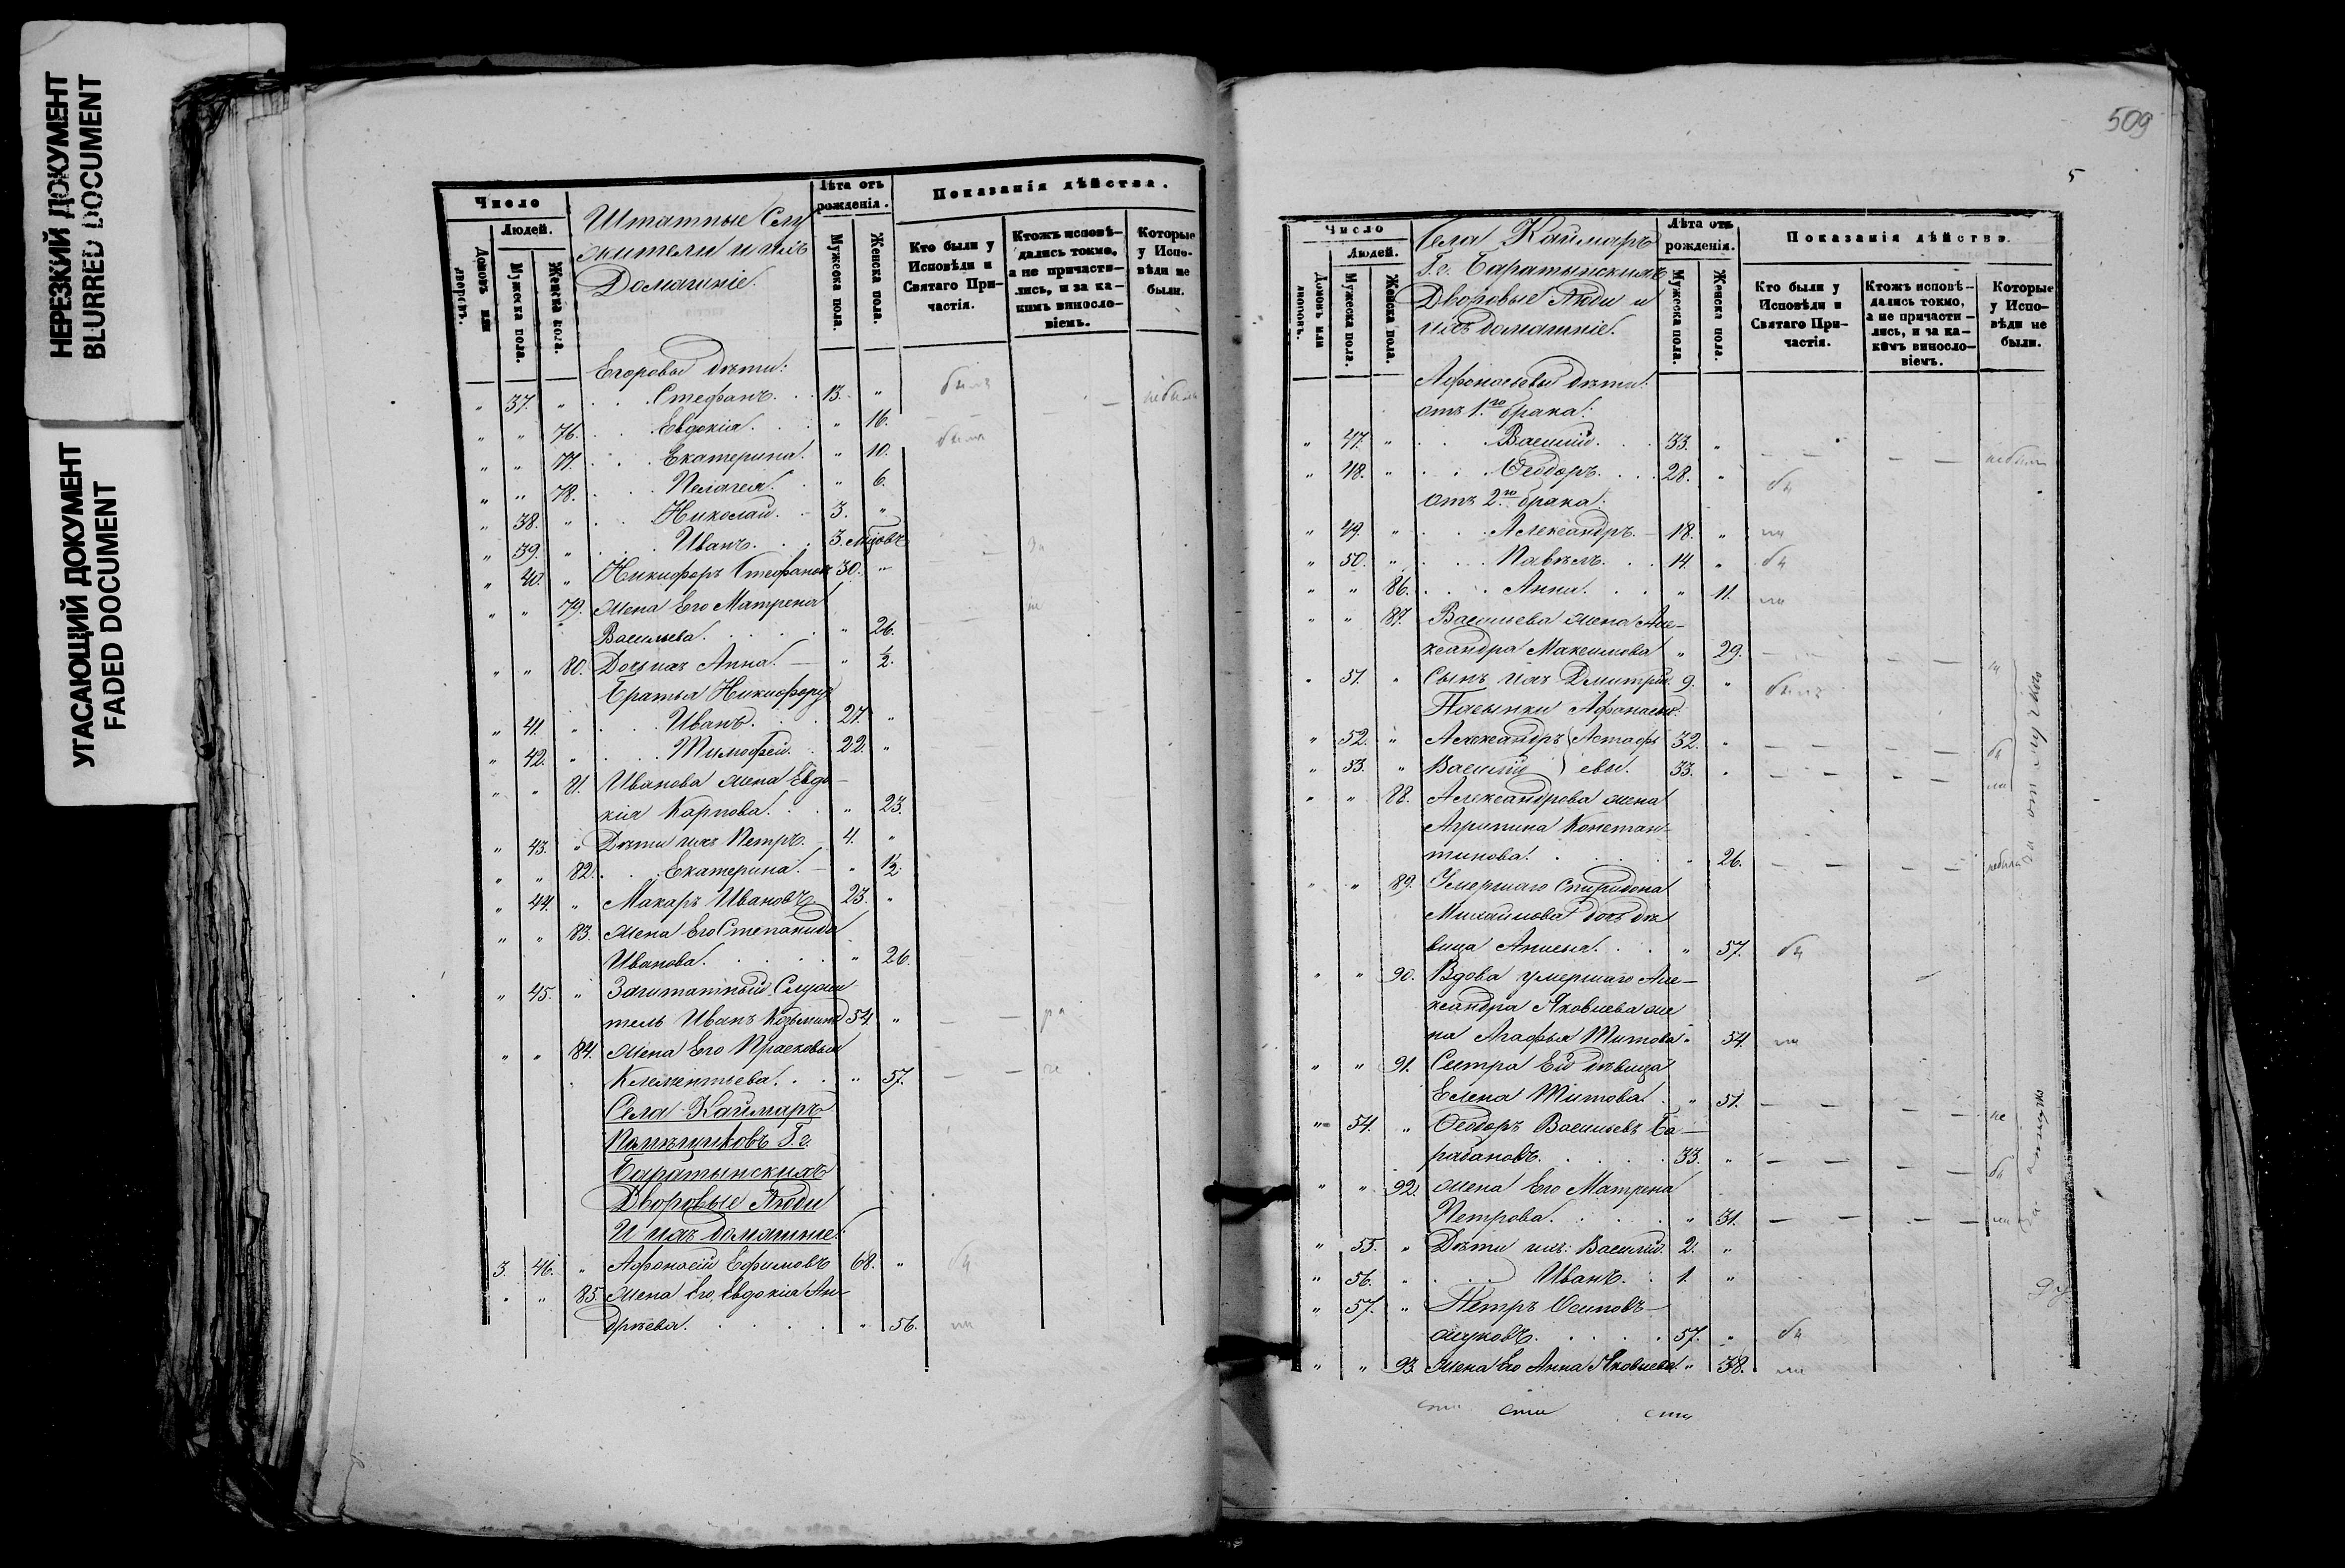 НЕРЕЗКИЙ ДОКУМЕНТ
BLURRED DOCUMENT
УГАСАЮЩИЙ ДОКУМЕНТ
FADED DOCUMENT
Число
Людей.
Домовъ или дворовъ.
Мужеска пола.
Женска пола.
Штатные Слу
жители и ихъ
Домашніе.
Лѣта отъ рожденія.
Мужеска пола.
Женска пола.
Показанія дѣйства.
Кто были у Исповѣди и Святаго Причастія.
Ктожъ исповѣдались токмо, а не причастились, и за какимъ винословіемъ.
Которые у Исповѣди не были.
Егоровы дѣти:
„ 37. „ Стефанъ. 13. „ былъ
„ „ 76. Евдокія. „ 16. небыла
„ „ 77. Екатерина. „ 10. была
„ „ 78. Пелагея. „ 6.
„ 38. „ Николай. 3. „
„ 39. „ Иванъ. 3. мѣсяцовъ
„ 40. „ Никифоръ Стефановъ 30. „
„ „ 79. Жена Его Матрена
Васильева. „ 26.
„ „ 80. Дочь ихъ Анна. „ ½.
Братья Никифору
„ 41. „ Иванъ. 27. „
„ 42. „ Тимофей. 22. „
„ „ 81. Иванова жена Евдо-
кія Карпова. „ 23.
„ 43. „ Дѣти ихъ Петръ. 4. „
„ „ 82. Екатерина. „ 1½
„ 44. „ Макаръ Ивановъ. 23. „
„ „ 83. Жена Его Степанида
Иванова. „ 26.
„ 45. „ Заштатный Служи
тель Иванъ Козьминъ 54. „
„ „ 84. Жена Его Прасковья
Клементьева. „ 57.
Села Каймаръ
Помѣщиковъ Г.с.
Баратынскихъ
Дворовые Люди
И ихъ домашніе:
3. 46. „ Афонасій Ефимовъ 68. „ бы
„ „ 85. Жена Его, Евдокія Ан-
дрѣева. „ 56. ли
509
5
Число
Людей.
Домовъ или дворовъ.
Мужеска пола.
Женска пола.
Села Каймаръ
Г.с. Баратынскихъ
Дворовые Люди и
ихъ домашніе.
Лѣта отъ рожденія.
Мужеска пола.
Женска пола.
Показанія дѣйства.
Кто были у Исповѣди и Святаго Причастія.
Ктожъ исповѣдались токмо, а не причастились, и за какимъ винословіемъ.
Которые у Исповѣди не были.
Афонасьевы дѣти:
отъ 1.го брака:
„ 47. „ Василій. 33. „ небылъ
„ 48. „ Ѳеодоръ. 28. „ бы
отъ 2.го брака:
„ 49. „ Александръ. 18. „ ли
„ 50. „ Павелъ. 14. „ бы
„ „ 86. Анна. „ 11. ли
„ „ 87. Васильева жена Але-
ксандра Максимова „ 29.
„ 51. „ Сынъ ихъ Дмитрій. 9. „ былъ
Пасынки Афонасью:
„ 52. „ Александръ } Астафь 32. „ бы
„ 53. „ Василій } евы. 33. „ ли
за отлучкою
„ „ 88. Александрова жена
Агрипина Констан-
тинова. „ 26. небыла
„ „ 89. Умершаго Спиридона
Михайлова дочь дѣ
вица Анисья. „ 57. бы
„ „ 90. Вдова умершаго Але-
ксандра Яковлева же
на Агафья Титова „ 54. ли
„ „ 91. Сестра Ей дѣвица
Елена Титова. „ 51. не
„ 54. „ Ѳеодоръ Васильевъ Ба-
рабановъ. 33. „ бы
„ „ 92. Жена Его Матрена
Петрова. „ 31. ли
„ 55. „ Дѣти ихъ: Василій. 2. „
„ 56. „ Иванъ. 1. „
„ 57. „ Петръ Осиповъ
жуковъ. 57. „ бы
„ „ 93. Жена Его Анна Яковлева „ 38. ли